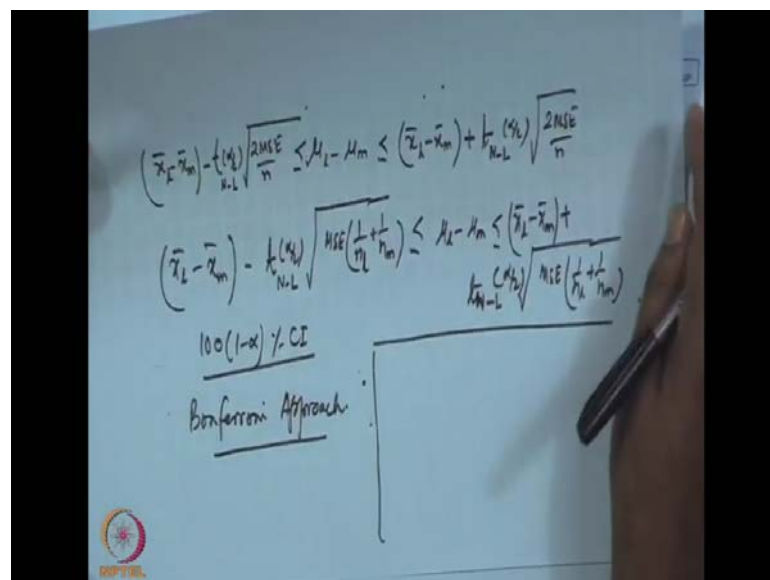 (x̄_l - x̄_m) - t_{N-L}^{(α/2)} √(2MSE/n) ≤ μ_l - μ_m ≤ (x̄_l - x̄_m) + t_{N-L}^{(α/2)} √(2MSE/n)
(x̄_l - x̄_m) - t_{N-L}^{(α/2)} √(MSE(1/n_l + 1/n_m)) ≤ μ_l - μ_m ≤ (x̄_l - x̄_m) +
t_{N-L}^{(α/2)} √(MSE(1/n_l + 1/n_m))
100(1-α) % CI
Bonferroni Approach :
NPTEL